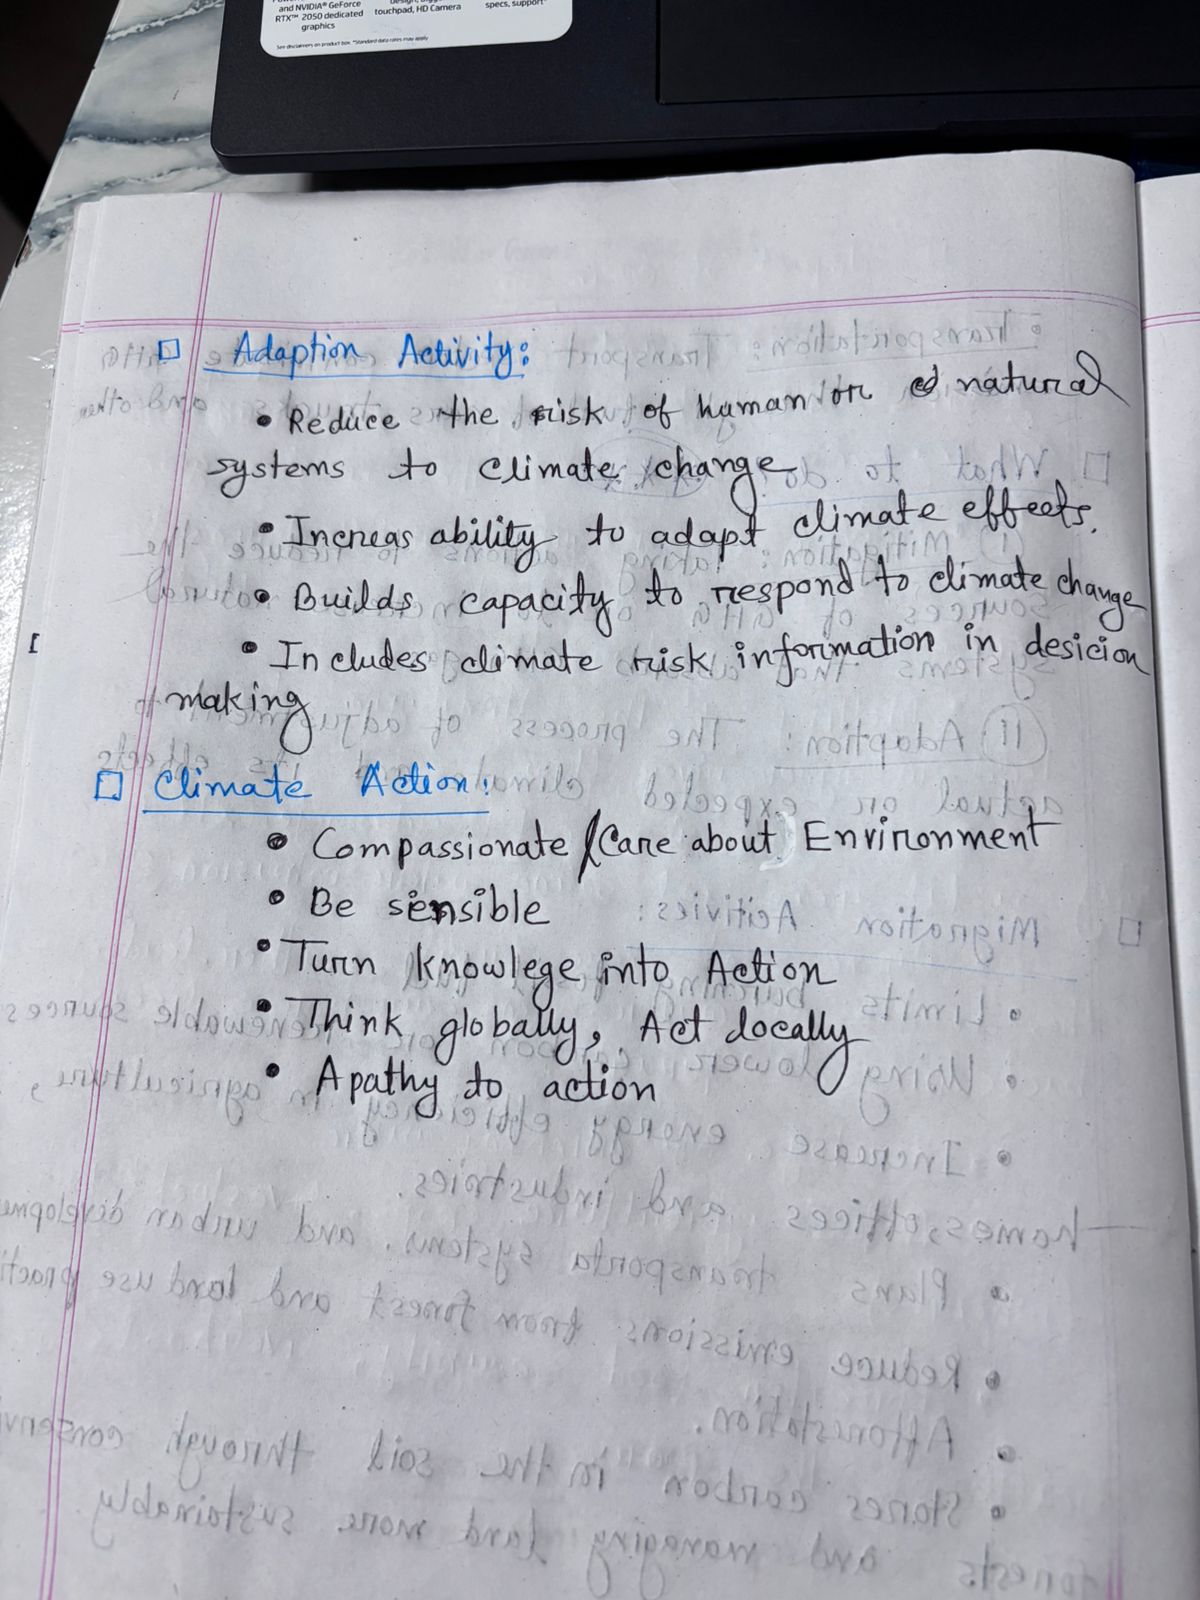 and NVIDIA® GeForce
RTX™ 2050 dedicated
graphics
touchpad, HD Camera
specs, support*
See disclaimers on product box. *Standard data rates may apply
Adaption Activity:
• Reduce the risk of human or natural
systems to climate change
• Increas ability to adapt climate effects.
• Builds capacity to respond to climate change
• Includes climate risk information in desicion
making
Climate Action:
• Compassionate / Care about Environment
• Be sensible
• Turn knowlege into Action
• Think globally, Act locally
• Apathy to action